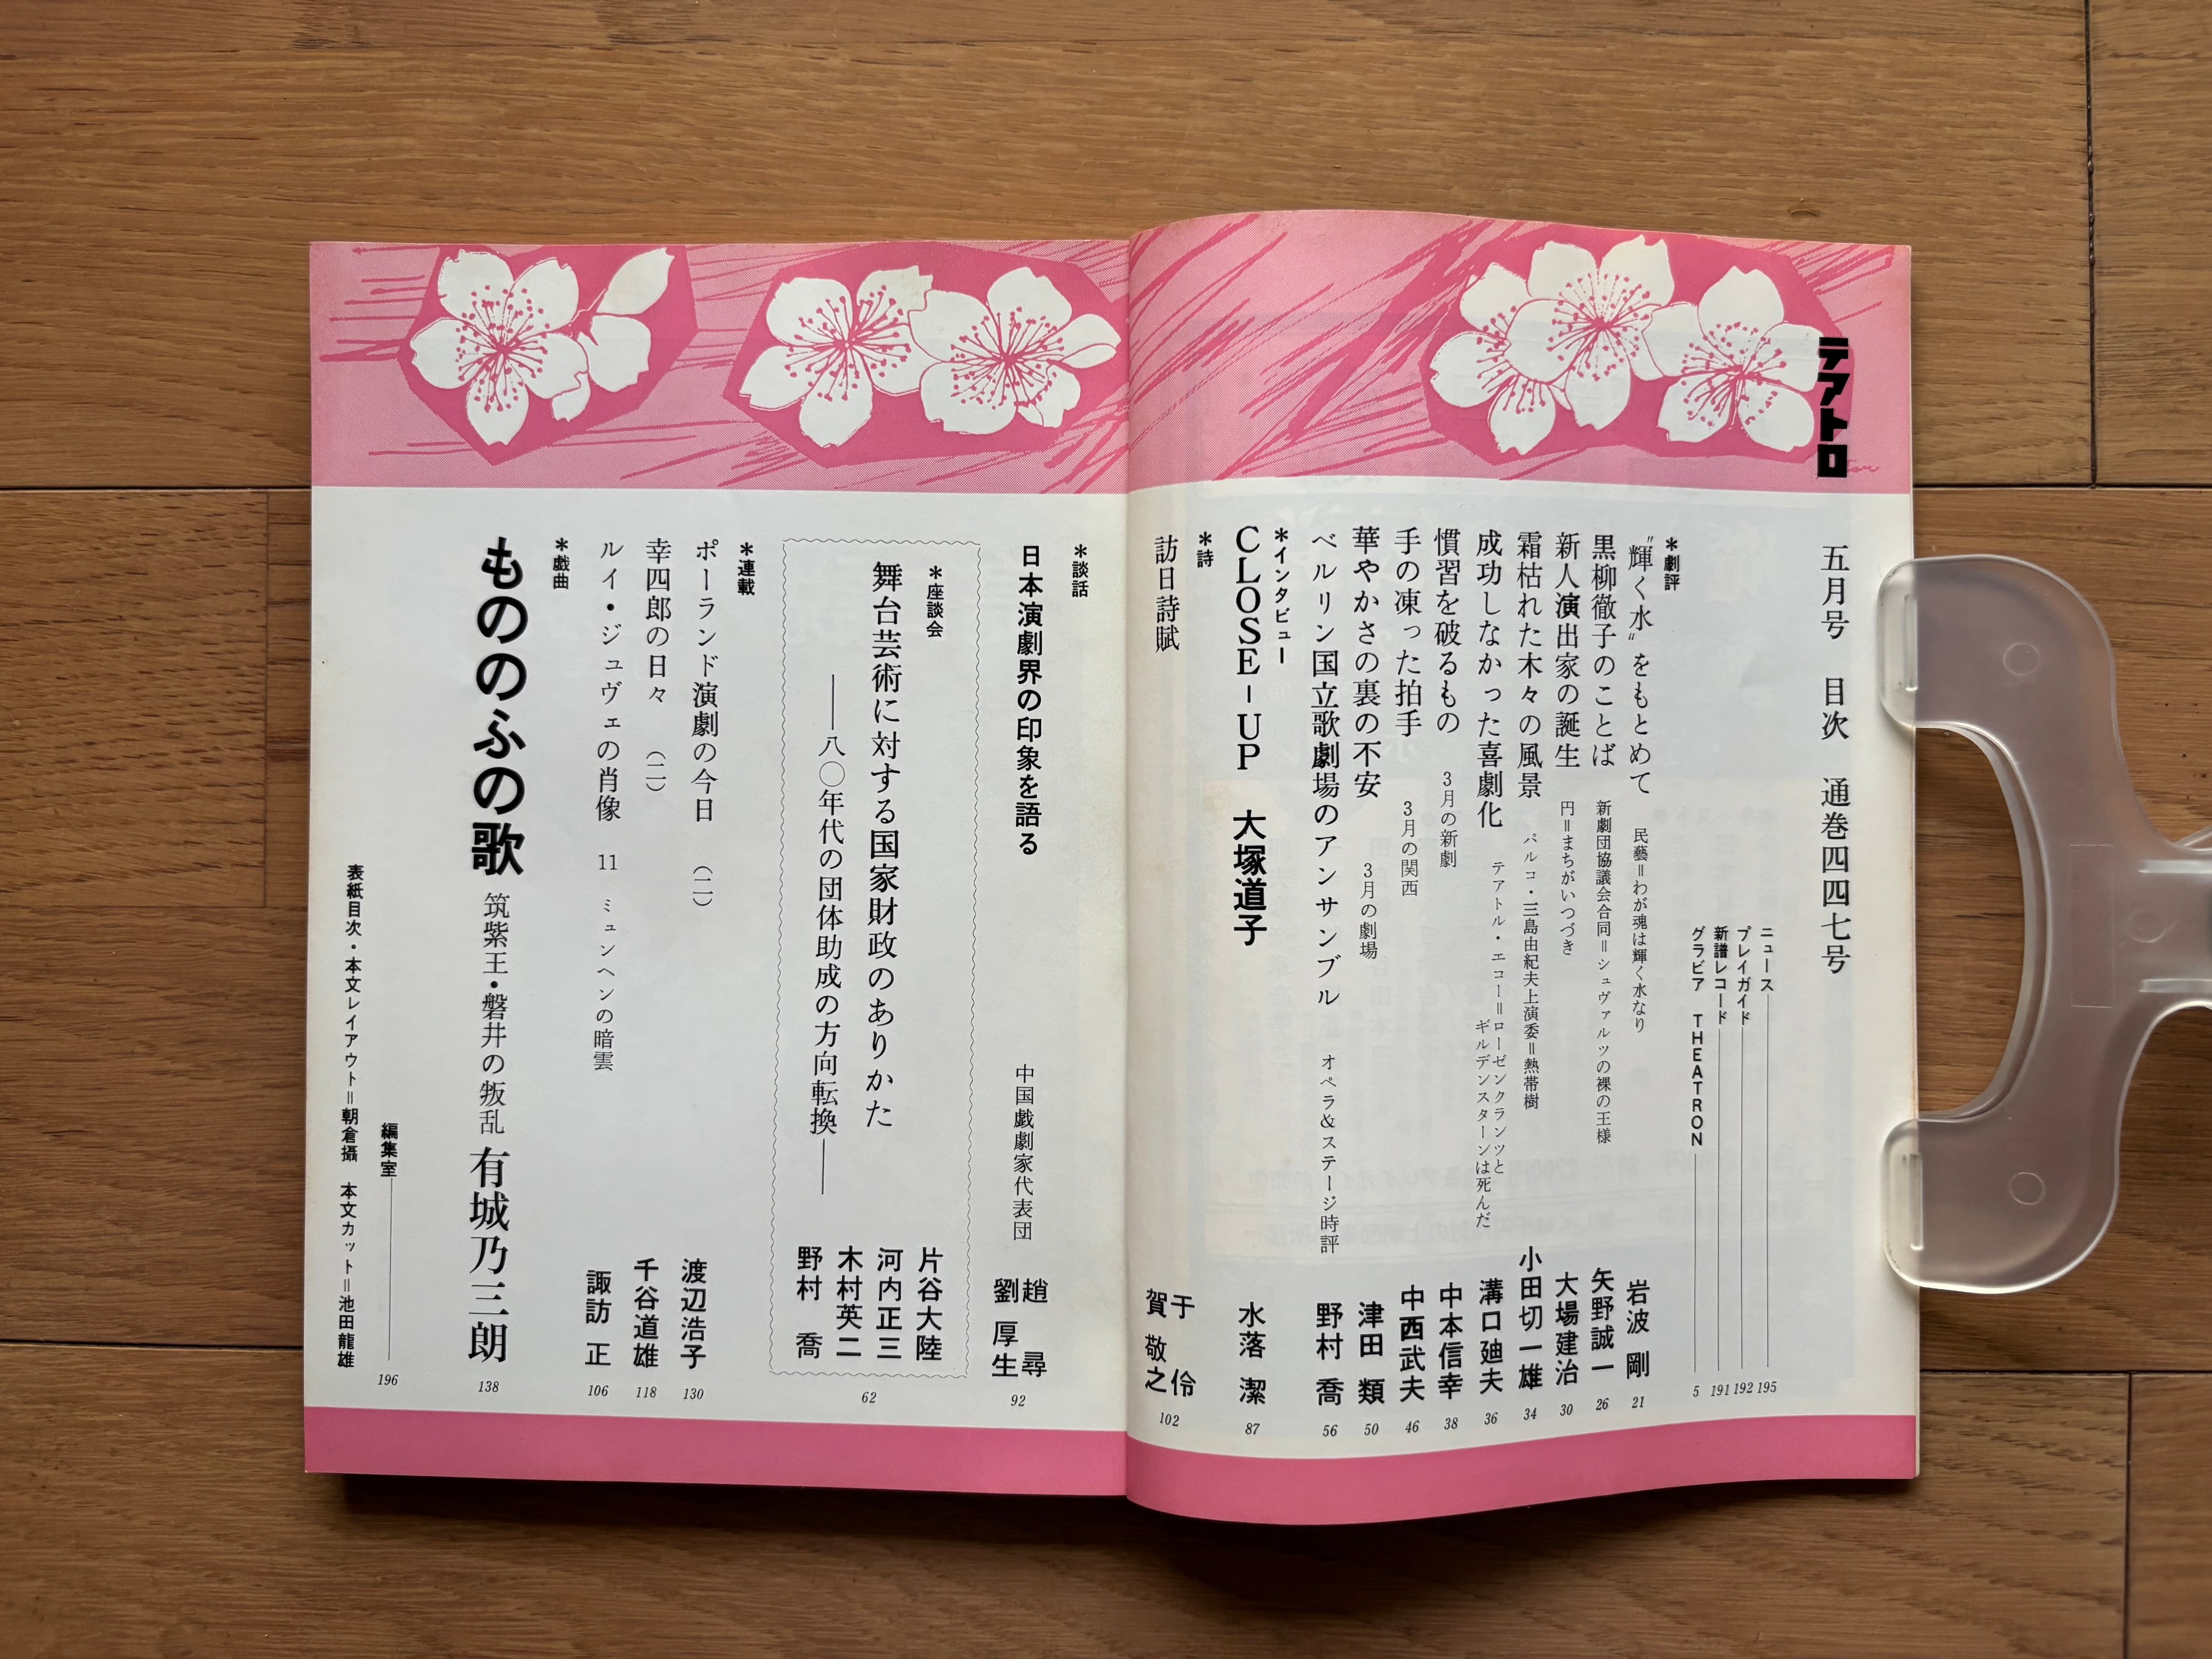 テアトロ
五月号 目次 通巻四四七号
ニュース 195
プレイガイド 192
新譜レコード 191
グラビア THEATRON 5
＊劇評
〝輝く水〟をもとめて 民藝＝わが魂は輝く水なり 岩波 剛 21
黒柳徹子のことば 新劇団協議会合同＝シュヴァルツの裸の王様 矢野誠一 26
新人演出家の誕生 円＝まちがいつづき 大場建治 30
霜枯れた木々の風景 パルコ・三島由紀夫上演委＝熱帯樹 小田切一雄 34
成功しなかった喜劇化 テアトル・エコー＝ローゼンクランツと
ギルデンスターンは死んだ 溝口廸夫 36
慣習を破るもの 3月の新劇 中本信幸 38
手の凍った拍手 3月の関西 中西武夫 46
華やかさの裏の不安 3月の劇場 津田 類 50
ベルリン国立歌劇場のアンサンブル オペラ&ステージ時評 野村 喬 56
＊インタビュー
CLOSE－UP 大塚道子 水落 潔 87
＊詩
訪日詩賦 于 伶
賀 敬之 102
＊談話
日本演劇界の印象を語る 中国戯劇家代表団 趙 尋
劉 厚生 92
＊座談会
舞台芸術に対する国家財政のありかた
――八〇年代の団体助成の方向転換――
片谷大陸
河内正三
木村英二
野村 喬
62
＊連載
ポーランド演劇の今日 (二) 渡辺浩子 130
幸四郎の日々 (二) 千谷道雄 118
ルイ・ジュヴェの肖像 11 ミュンヘンの暗雲 諏訪 正 106
＊戯曲
もののふの歌 筑紫王・磐井の叛乱 有城乃三朗 138
編集室 196
表紙目次・本文レイアウト＝朝倉攝 本文カット＝池田龍雄